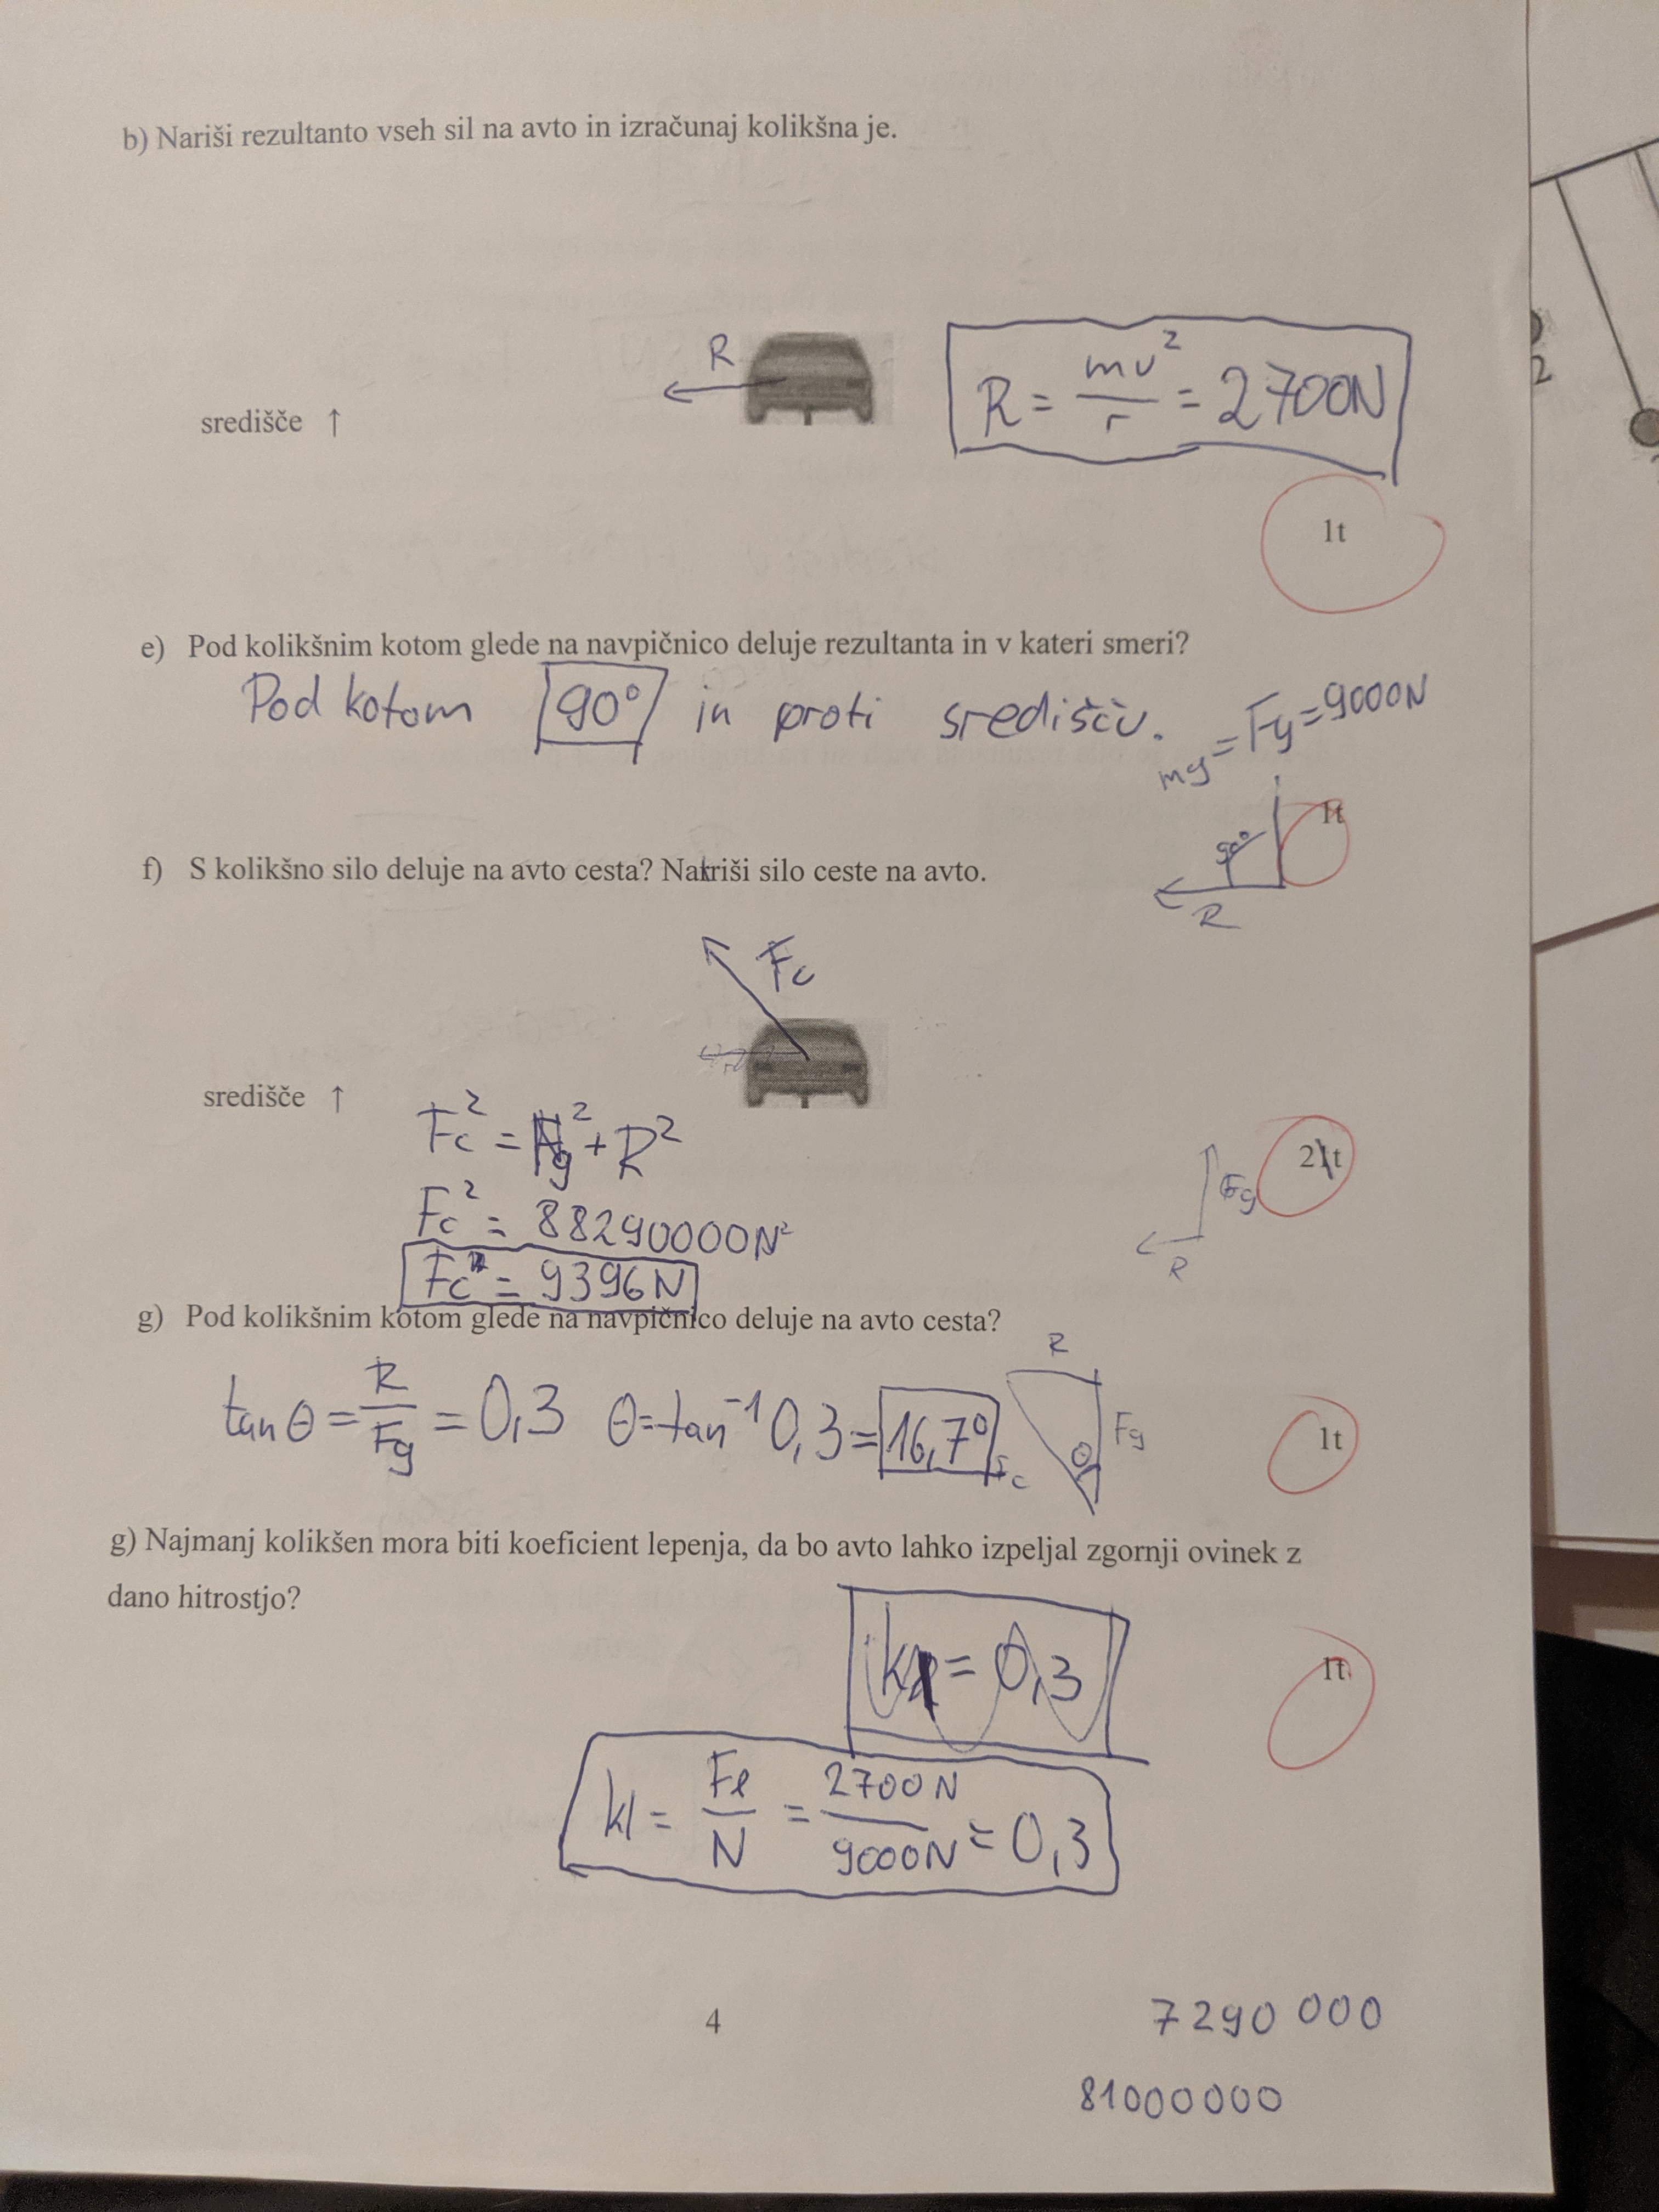 b) Nariši rezultanto vseh sil na avto in izračunaj kolikšna je.
R
središče ↑
R = mv²/r = 2700N
1t
2
e) Pod kolikšnim kotom glede na navpičnico deluje rezultanta in v kateri smeri?
Pod kotom 90° in proti središču.
mg = Fg = 9000N
1t
90°
R
f) S kolikšno silo deluje na avto cesta? Natriši silo ceste na avto.
Fc
središče ↑
Fc² = Fg² + R²
Fc² = 88290000N²
Fc = 9396N
2t
Fg
R
g) Pod kolikšnim kotom glede na navpičnico deluje na avto cesta?
tanθ = R/Fg = 0,3 θ = tan⁻¹ 0,3 = 16,7°
R
Fg
θ
Fc
1t
g) Najmanj kolikšen mora biti koeficient lepenja, da bo avto lahko izpeljal zgornji ovinek z
dano hitrostjo?
kl = 0,3
1t
kl = Fl/N = 2700N/9000N = 0,3
4
7290 000
81000000